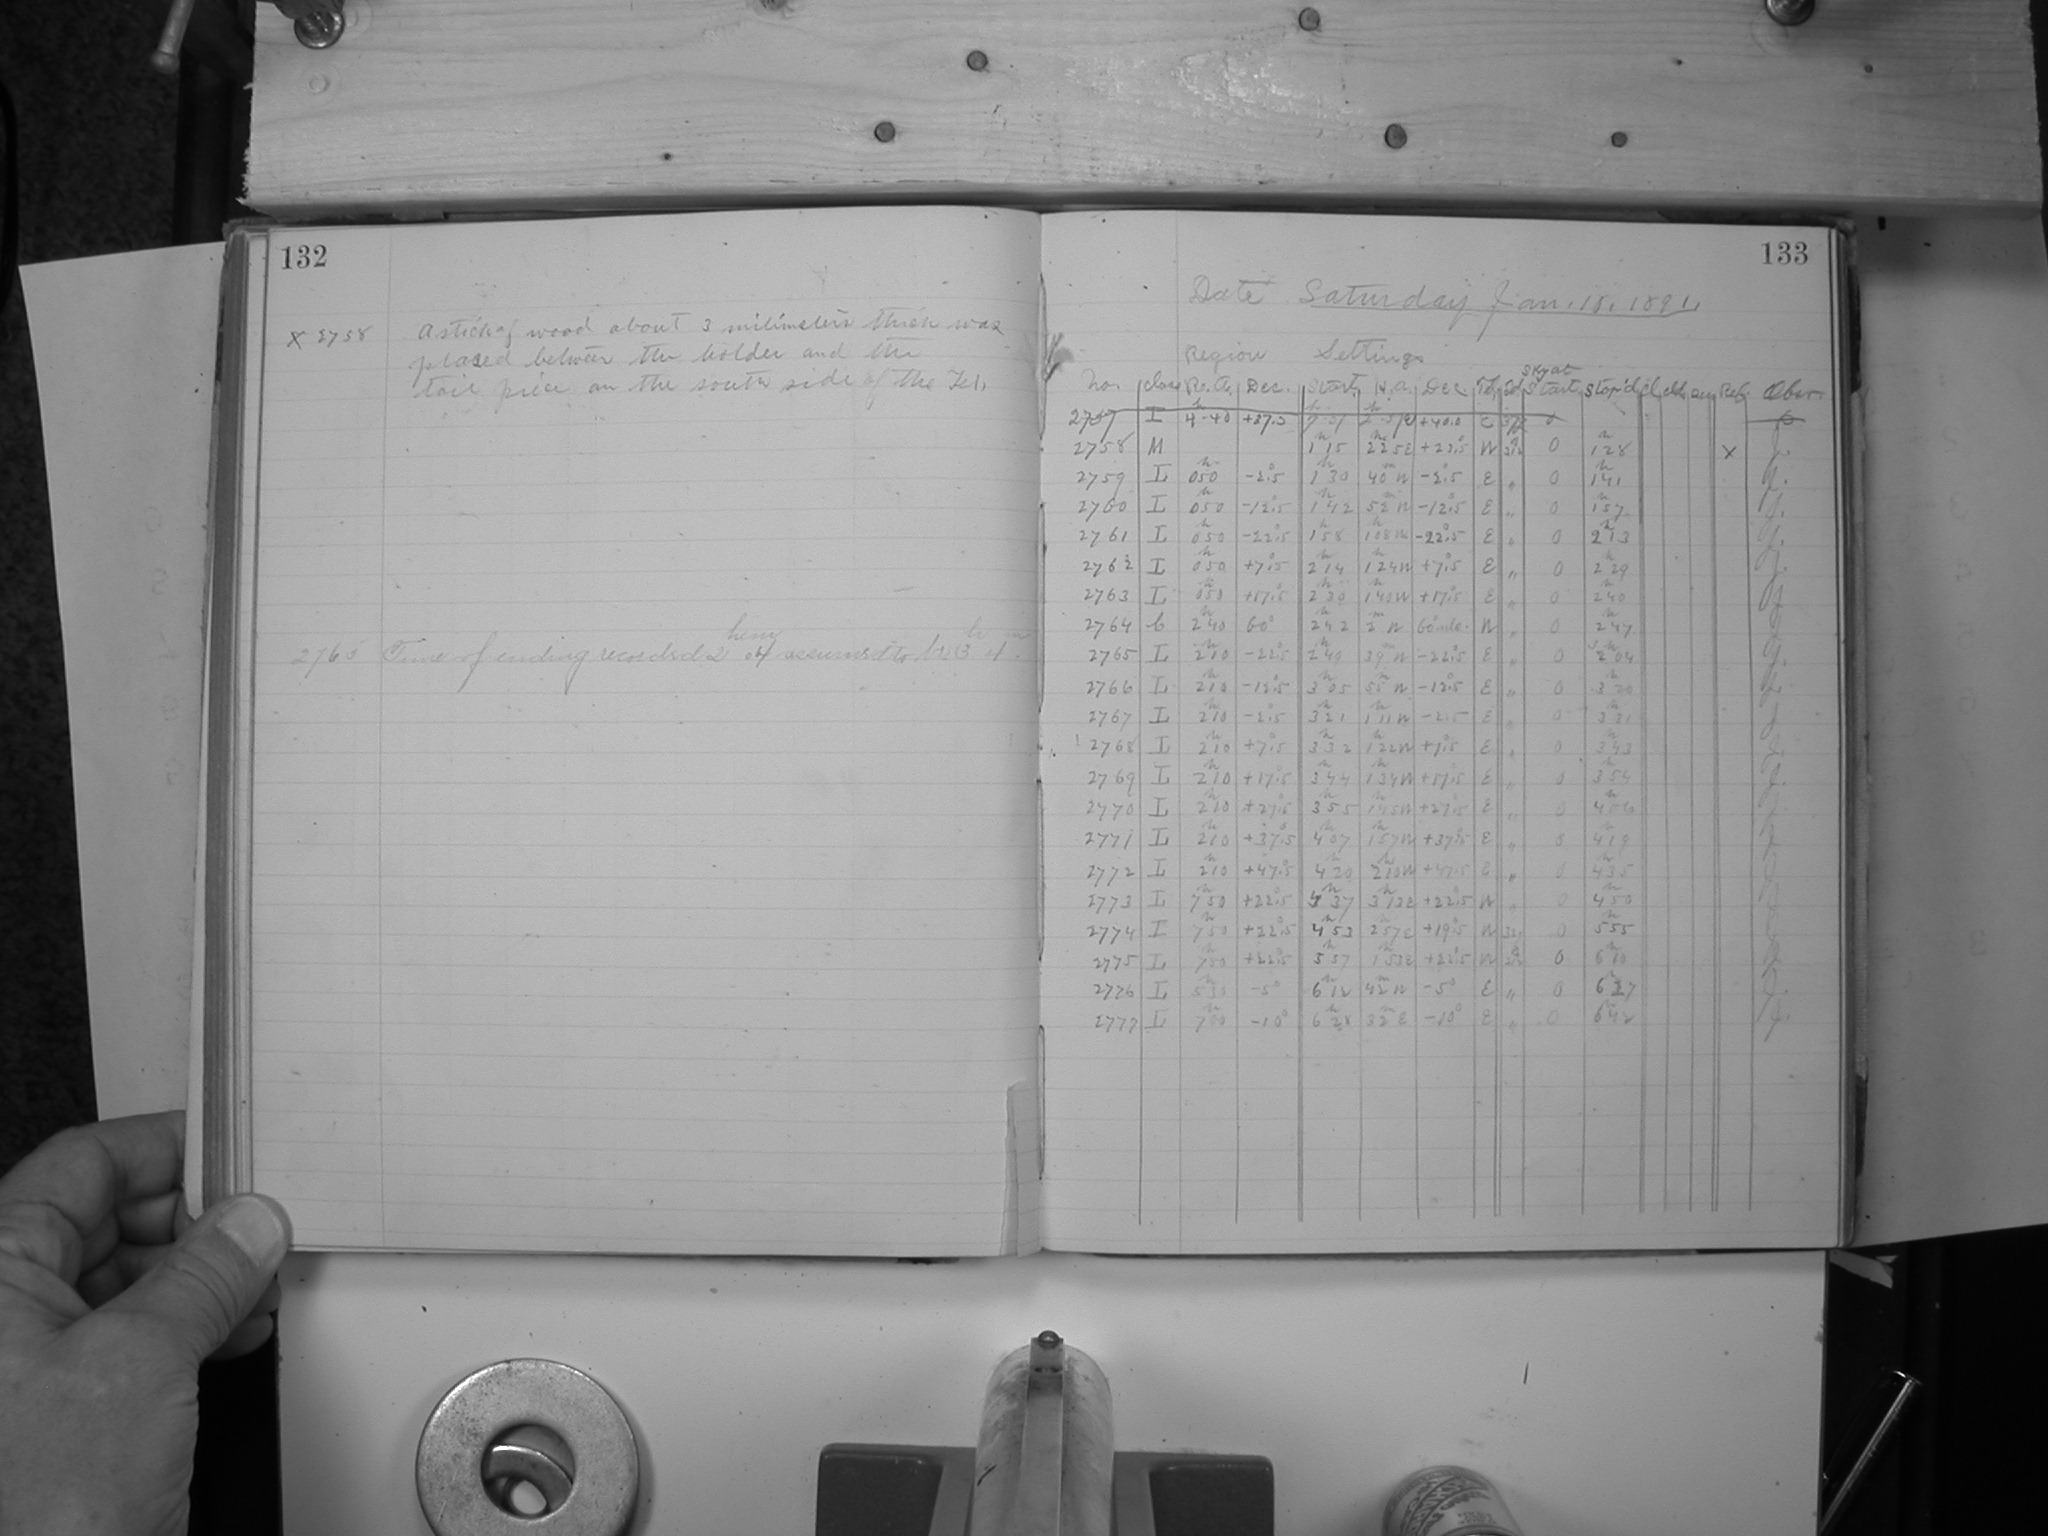 132
X 2758 A stick of wood about 3 milimeters thick was
placed between the holder and the
tail piece on the south side of the Tel.
here
2765 Time of ending recorded 2 04 assumed to be 3h 4m.
133
Date Saturday Jan. 18. 1891.
Region Settings
No. Class R.A. Dec. Start H.A. Dec. Sky at Start Stop'd Cl. Ref. Obsr.
2757 I 4h 40 +37.5 +40.0 E 0
2758 M 1h 15 2h 25 E +23°.5 W 0 1h 28 X J.
2759 I 0h 50 -2°.5 1h 30 40m W -2°.5 E " 0 1h 41 J.
2760 I 0h 50 -12°.5 1h 42 52m W -12°.5 E " 0 1h 57 J.
2761 I 0h 50 -22°.5 1h 58 1h 08 W -22°.5 E " 0 2h 13 J.
2762 I 0h 50 +7°.5 2h 14 1h 24 W +7°.5 E " 0 2h 29 J.
2763 I 0h 50 +17°.5 2h 30 1h 40 W +17°.5 E " 0 2h 40 J.
2764 C 2h 40 60° 2h 42 2m W 60° W " 0 2h 47 J.
2765 L 2h 10 -22°.5 2h 49 39m W -22°.5 E " 0 2h 04 J.
2766 L 2h 10 -12°.5 3h 05 55m W -12°.5 E " 0 3h 20 J.
2767 I 2h 10 -2°.5 3h 21 1h 11 W -2°.5 E " 0 3h 31 J.
2768 I 2h 10 +7°.5 3h 32 1h 22 W +7°.5 E " 0 3h 43 J.
2769 I 2h 10 +17°.5 3h 44 1h 34 W +17°.5 E " 0 3h 54 J.
2770 I 2h 10 +27°.5 3h 55 1h 45 W +27°.5 E " 0 4h 06 J.
2771 I 2h 10 +37°.5 4h 07 1h 57 W +37°.5 E " 0 4h 19 J.
2772 L 2h 10 +47°.5 4h 20 2h 10 W +47°.5 E " 0 4h 35 J.
2773 L 7h 50 +22°.5 4h 37 3h 13 E +22°.5 W " 0 4h 50 J.
2774 I 7h 50 +22°.5 4h 53 2h 57 E +19°.5 W 0 5h 55 J.
2775 L 7h 50 +22°.5 5h 57 1h 53 E +22°.5 W 0 6h 10 J.
2776 L 5h 30 -5° 6h 12 42m W -5° E " 0 6h 27 J.
2777 L 7h 00 -10° 6h 28 32m E -10° E " 0 6h 42 J.